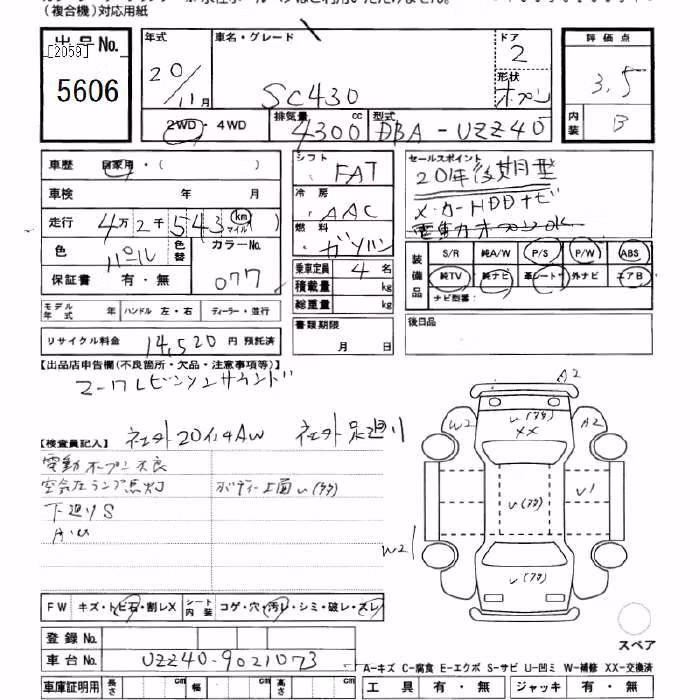 (複合機)対応用紙
出品No.
[2059]
5606
年式 20/11月
車名・グレード SC430
ドア 2
形状 オープン
2WD・4WD
排気量 4300 cc
型式 DBA-UZZ40
評価点 3.5
内装 B
車歴 自家用・( )
車検 年 月
走行 4万2千543 km マイル
色 パール 色替
カラーNo. 077
保証書 有・無
シフト FAT
冷房 AAC
燃料 ガソリン
乗車定員 4 名
積載量 kg
総重量 kg
セールスポイント
20年後期型
メーカーHDDナビ
電動オープンOK
装備品 S/R 純A/W P/S P/W ABS
純TV 純ナビ 革シート 外ナビ エアB
ナビ型番:
モデル年式 年 ハンドル 左・右 ディーラー・並行
書類期限 月 日
後日品
リサイクル料金 14,520 円 預託済
【出品店申告欄(不良箇所・欠品・注意事項等)】
マークレビンソンサウンド
【検査員記入】 社外20インチAW 社外足廻り
電動オープン不良
空気圧ランプ点灯 ボディー上面U(タタ)
下廻りS
A・U
A2
W2 U(タタ) XX A2
U(タタ) U1
W2
U(タタ)
FW キズ・トビ石・割レX シート内装 コゲ・穴・汚レ・シミ・破レ・スレ
スペア
登録No.
車台No. UZZ40-9021073
A-キズ C-腐食 E-エクボ S-サビ U-凹ミ W-補修 XX-交換済
車庫証明用 長さ cm 幅 cm 高さ cm
工具 有・無 ジャッキ 有・無